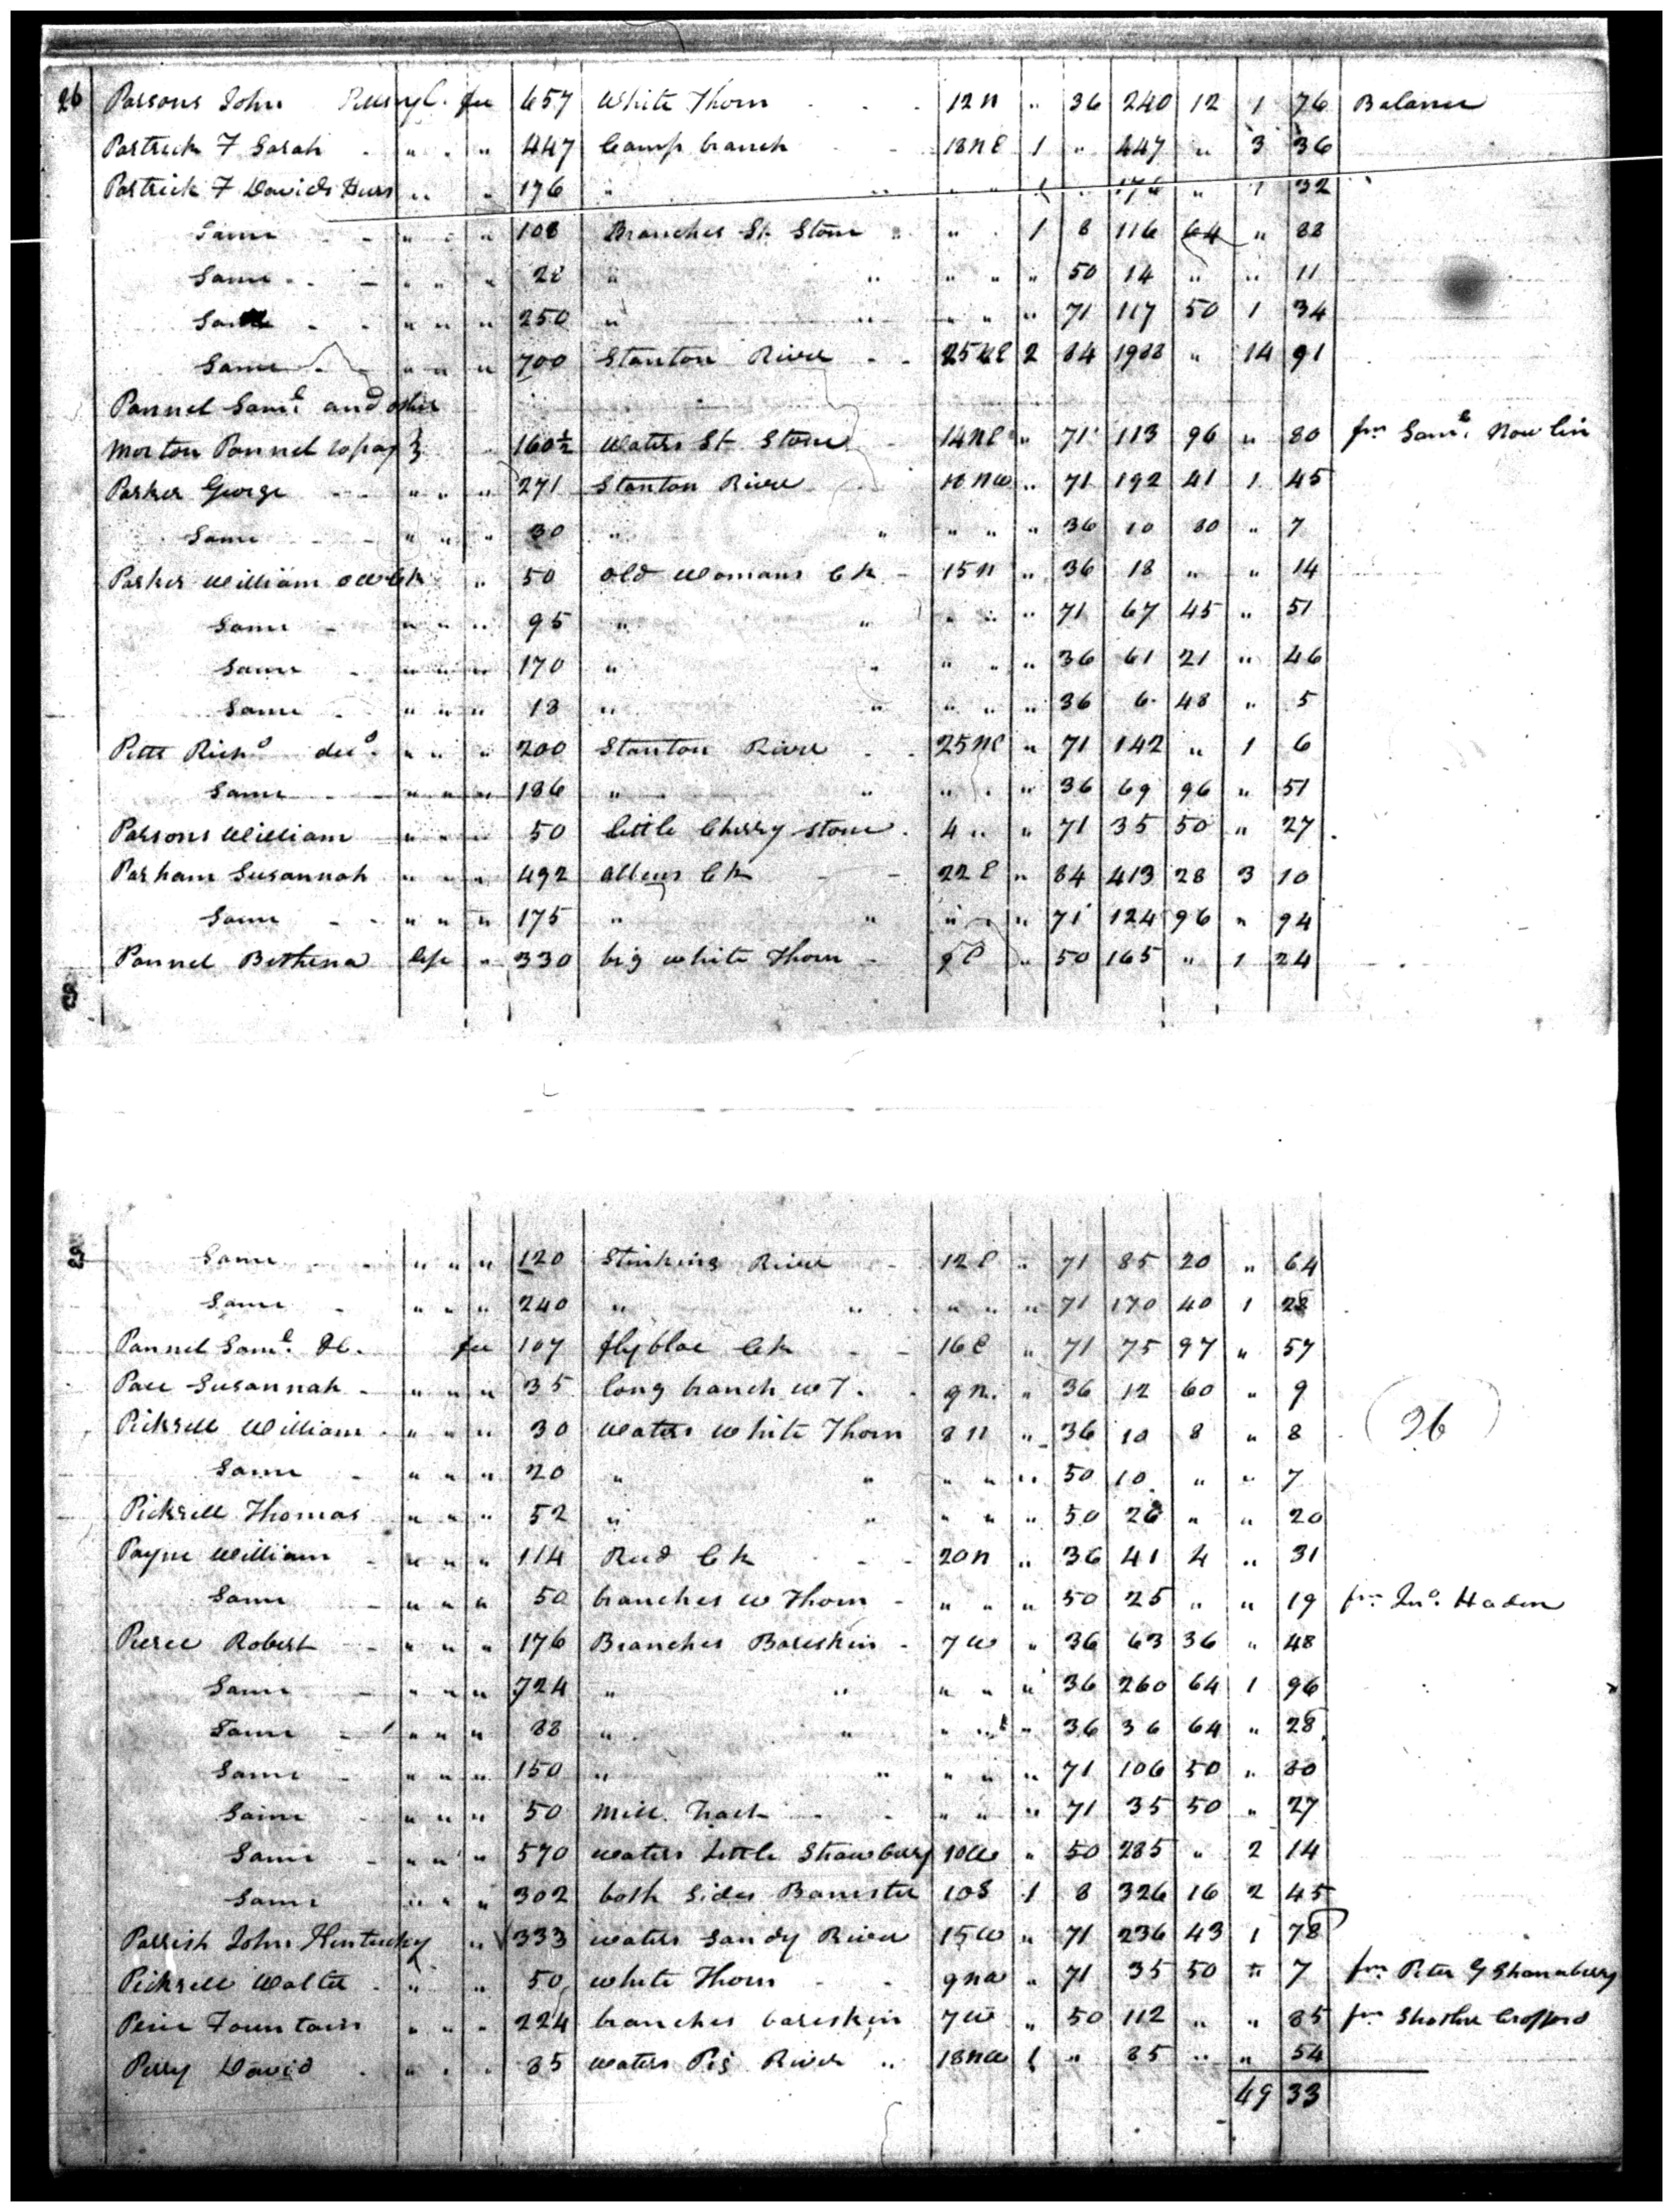 26 Parsons John Pittsyl. fee 657 White Thorn 12 N " 36 240 12 1 76 Balance
Partrick F Sarah " " 447 Camp branch 18 NE 1 " 447 " 3 36
Partrick F Davids Heirs " " 176 " " " " 1 " 176 " 1 32
Same " " " 108 Branches St. Stone " " 1 8 116 64 " 88
Same " " " 28 " " " " " 50 14 " " 11
Same " " " 250 " " " " " 71 117 50 1 34
Same " " " 700 Stanton River 25 NE 2 84 1988 " 14 91
Pannel Saml. and other
Morton Pannel } 160½ Waters St Stone 14 NE " 71 113 96 " 80 fm Saml. Nowlin
Parker George " " " 271 Stanton River 18 NW " 71 192 41 1 45
Same " " " 30 " " " " " 36 10 80 " 7
Parker William OW Ck " 50 Old Womans Ck 15 N " 36 18 " " 14
Same " " " 95 " " " " " 71 67 45 " 51
Same " " " 170 " " " " " 36 61 21 " 46
Same " " " 18 " " " " " 36 6 48 " 5
Richd decd. " " " 200 Stanton River 25 NE " 71 142 " 1 6
Same " " " 186 " " " " " 36 69 96 " 51
Parsons William " " " 50 little Cherry stone 4 " " 71 35 50 " 27
Parham Susannah " " " 492 Allens Ck 22 E " 84 413 28 3 10
Same " " " 175 " " " " " 71 124 96 " 94
Pannel Bethena life " 330 big white Thorn 9 E " 50 165 " 1 24
Same " " " 120 Stinking River 12 E " 71 85 20 " 64
Same " " " 240 " " " " " 71 170 40 1 28
Pannel Saml. fee 107 flyblae Ck 16 E " 71 75 97 " 57
Pace Susannah " " " 35 long branch W T 9 N " 36 12 60 " 9
Pickrell William " " " 30 Waters White Thorn 8 N " 36 10 8 " 8
26
Same " " " 20 " " " " " 50 10 " " 7
Pickrell Thomas " " " 52 " " " " " 50 26 " " 20
Payne William " " " 114 Reed Ck 20 N " 36 41 4 " 31
Same " " " 50 branches W Thorn " " " 50 25 " " 19 fm Jno. Haden
Pierce Robert " " " 176 Branches Bareskin 7 W " 36 63 36 " 48
Same " " " 724 " " " " " 36 260 64 1 96
Same " " " 88 " " " " " 36 36 64 " 28
Same " " " 150 " " " " " 71 106 50 " 80
Same " " " 50 Mill Tract " " " 71 35 50 " 27
Same " " " 570 Waters Little Strawbury 10 W " 50 285 " 2 14
Same " " " 302 both Sides Banister 10 S 1 8 326 16 2 45
Parrish John Kentucky " 333 Waters Sandy River 15 W " 71 236 43 1 78
Pickrell Walter " " 50 White Thorn 9 NW " 71 35 50 " 7 fm Peter G
Fountain " " " 224 branches bareskin 7 W " 50 112 " " 85 fm
Perry David " " " 85 Waters Pig River " 18 NW 1 " 85 " " 54
49 33